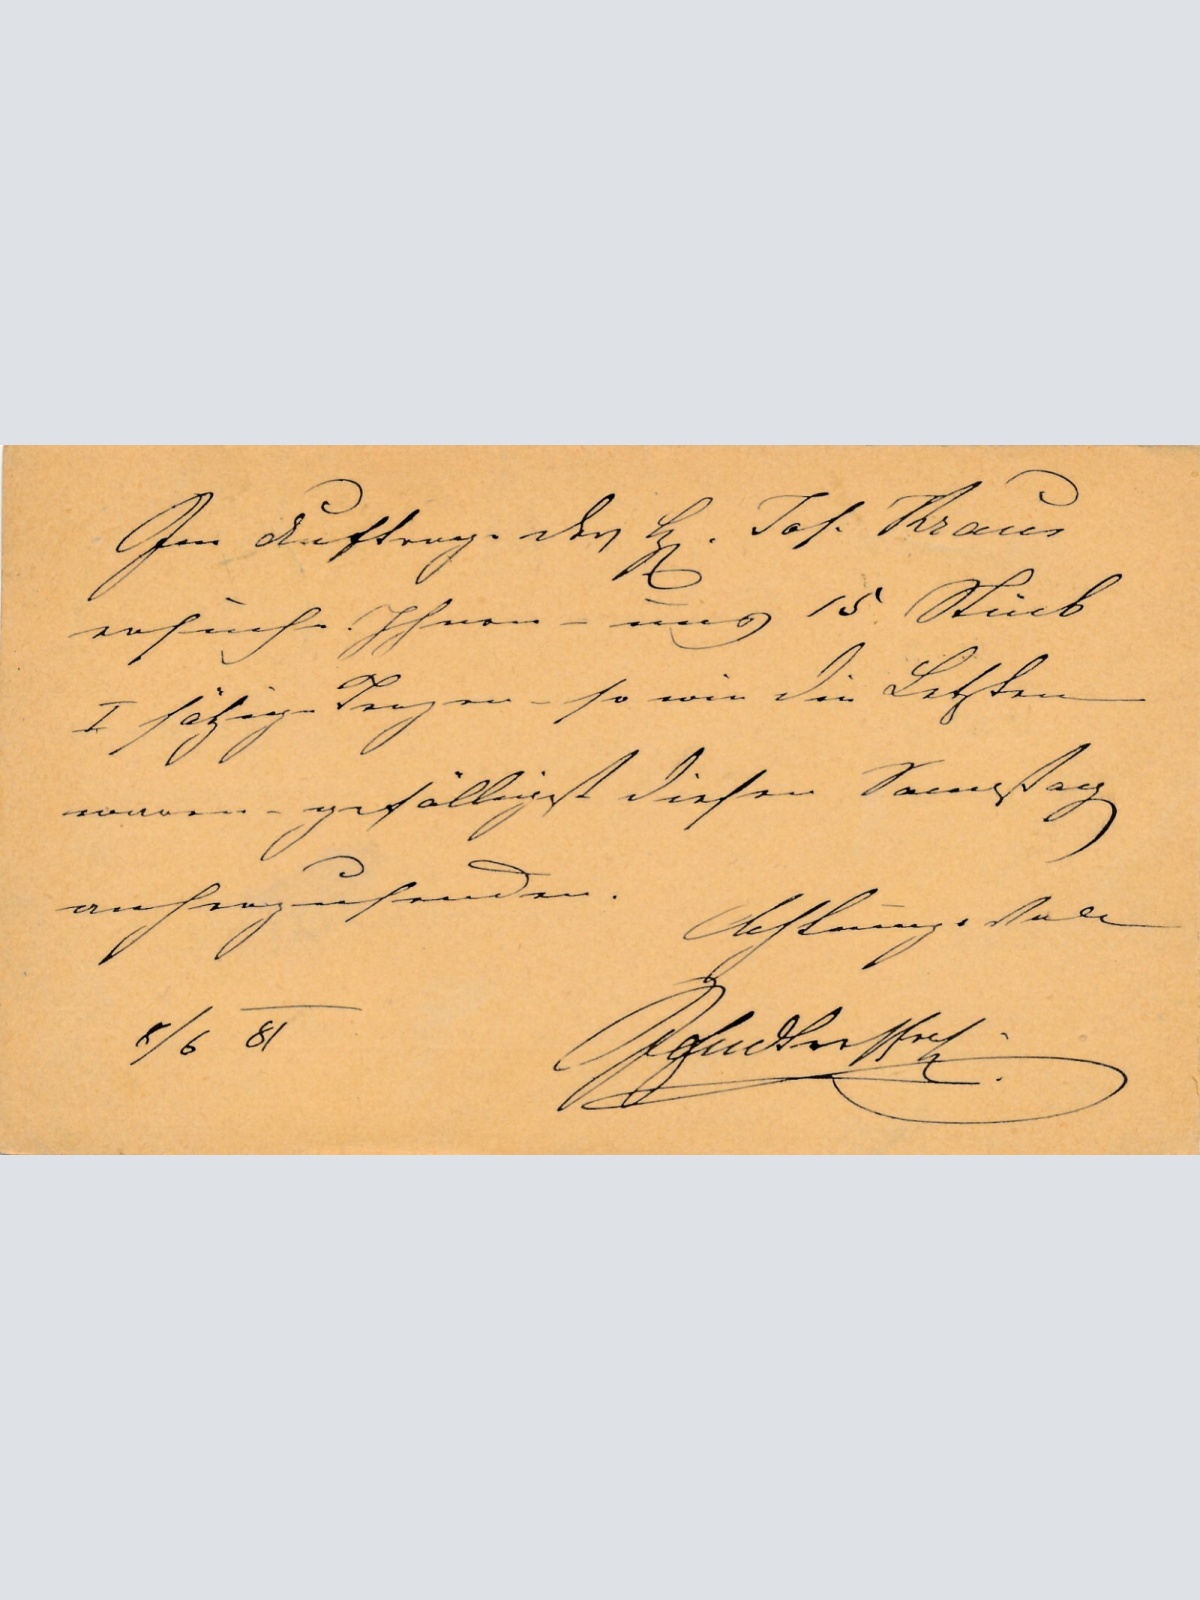 Im Auftrage des H. Jos. Kraus
ersuche Ihnen – uns 15 Stück
I sätzige Tragen – so wie die Letzten
waren – gefälligst diesen Samstag
anherzusenden.
Achtungsvoll
8/6 81